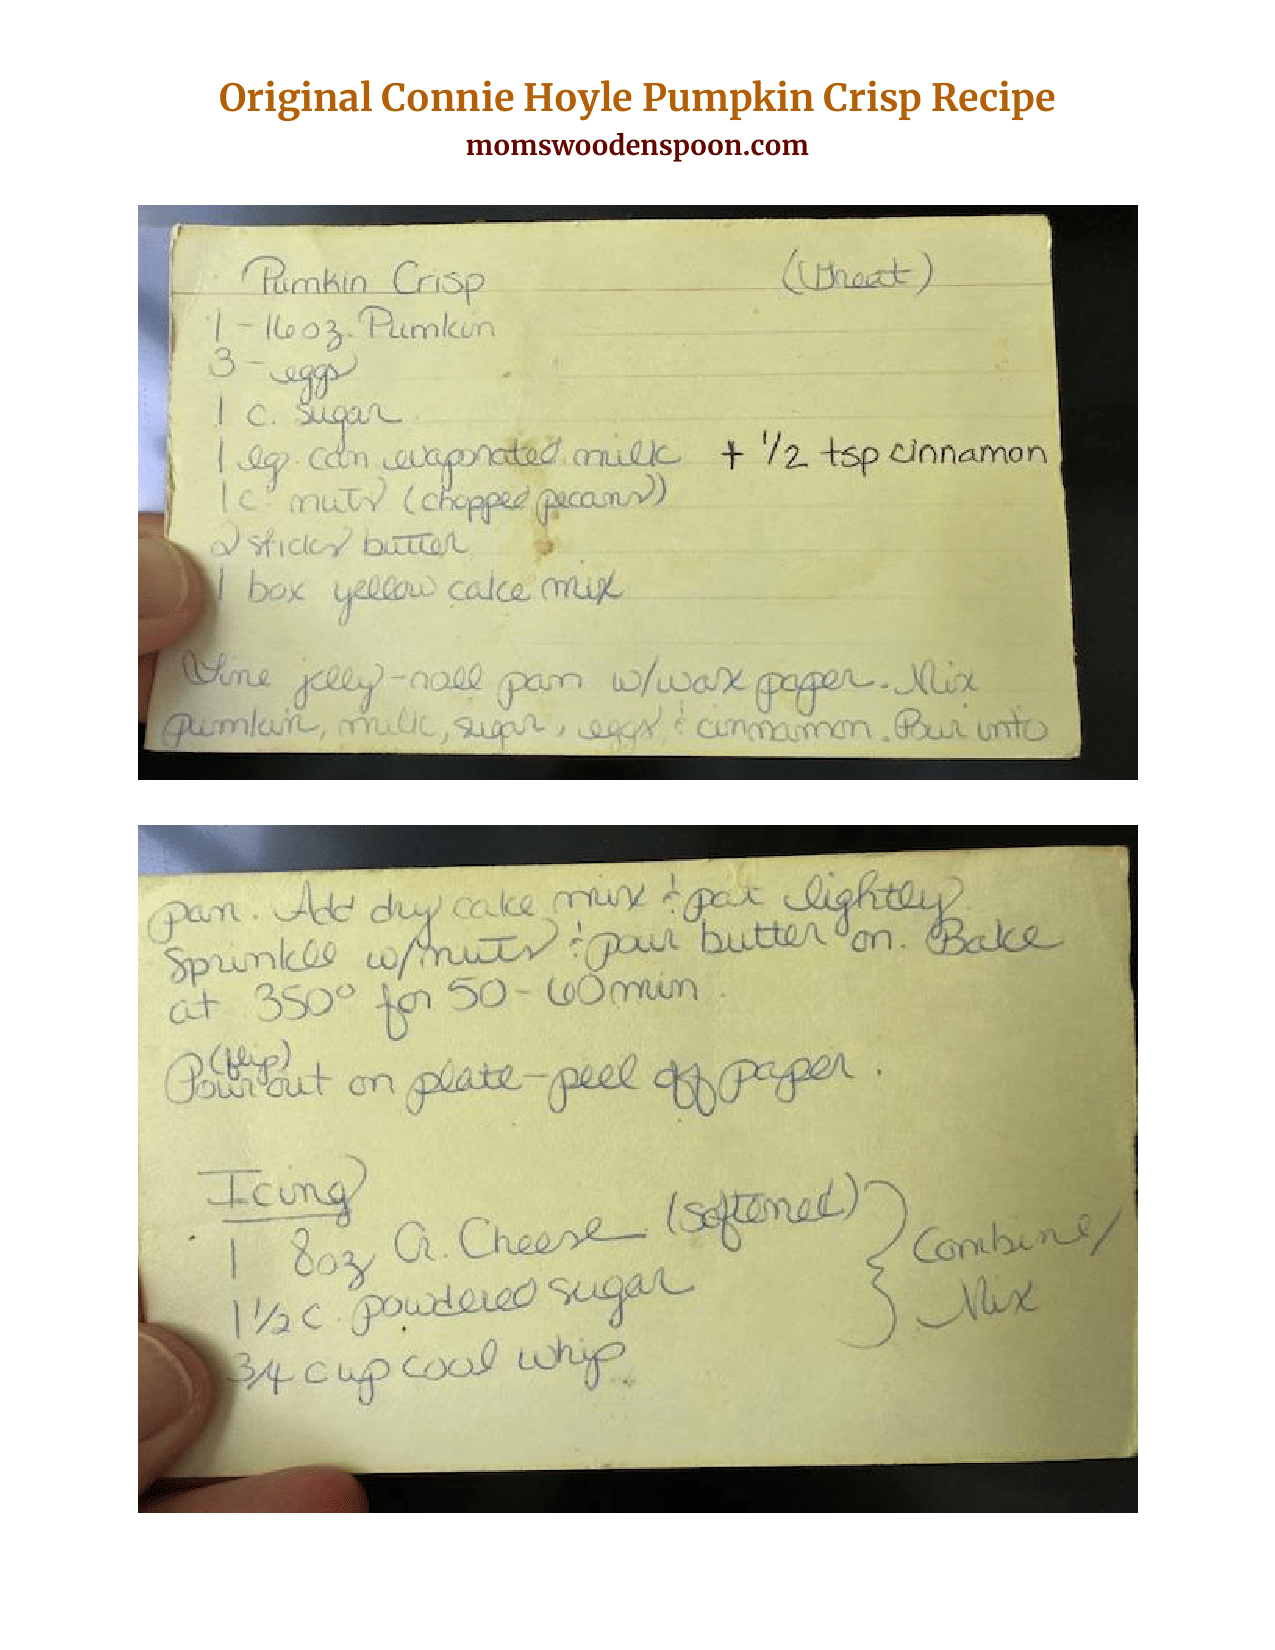 Original Connie Hoyle Pumpkin Crisp Recipe
momswoodenspoon.com
Pumkin Crisp (Wheat)
1 - 16 oz. Pumkin
3 - eggs
1 c. sugar
1 lg. can evaporated milk + 1/2 tsp cinnamon
1 c. nuts (chopped pecans)
2 sticks butter
1 box yellow cake mix
Line jelly-roll pan w/wax paper. Mix
pumkin, milk, sugar, eggs & cinnamon. Pour into
pan. Add dry cake mix & pat lightly
Sprinkle w/nuts & pour butter on. Bake
at 350° for 50-60 min.
(flip)
Pour out on plate-peel off paper.
Icing
1 8oz Cr. Cheese (softened)
1 1/2 c. powdered sugar
3/4 cup cool whip
Combine/
Mix